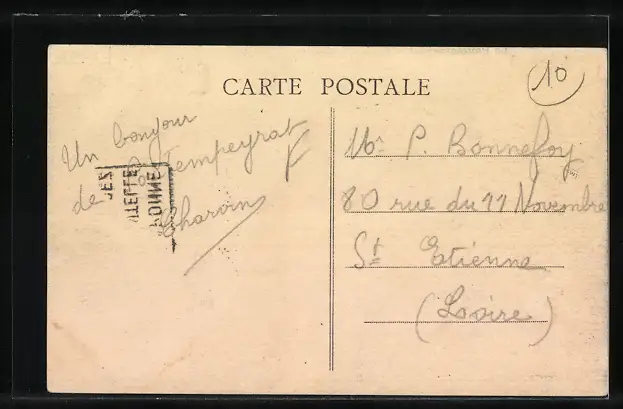 CARTE POSTALE
10
Un bonjour
de Pontempeyrat
Charoin
Mr P. Bonnefoy
80 rue du 11 Novembre
St Etienne
(Loire)